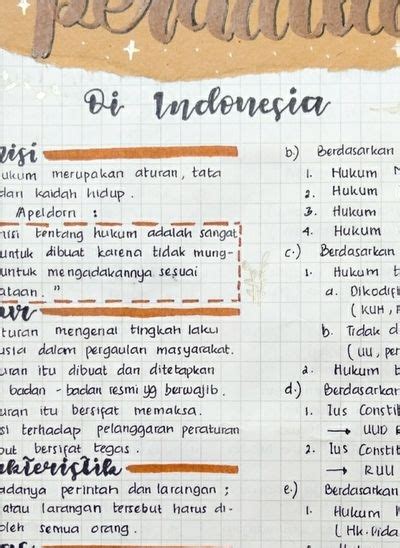 Di Indonesia
ukum merupakan aturan, tata
dan kaidah hidup.
Apeldorn :
nisi tentang hukum adalah sangat
untuk dibuat karena tidak mung-
untuk mengadakannya sesuai
ataan. "
turan mengenai tingkah laku
usia dalam pergaulan masyarakat.
uran itu dibuat dan ditetapkan
badan - badan resmi yg berwajib.
uran itu bersifat memaksa.
si terhadap pelanggaran peraturan
but bersifat tegas.
akteristik
adanya perintah dan larangan ;
atau larangan tersebut harus di-
oleh semua orang.
b.) Berdasarkan
1. Hukum
2. Hukum
3. Hukum
4. Hukum
c.) Berdasarkan
1. Hukum t
a. Dikodifi
( KUH ,
b. Tidak d
( UU, per
2. Hukum t
d.) Berdasarkan
1. Ius Constit
→ UUD
2. Ius Constit
→ RUU
e.) Berdasarkan
1. Hukum
( Hk. Pida